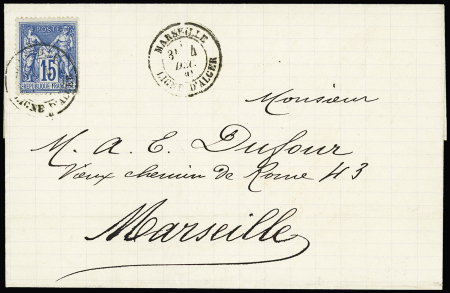 POSTES
15
REPUBLIQUE FRANCAISE
LIGNE D'ALGER
MARSEILLE
4
DEC.
LIGNE D'ALGER
Monsieur
M. A. E. Dufour
Vieux chemin de Rome 43
Marseille